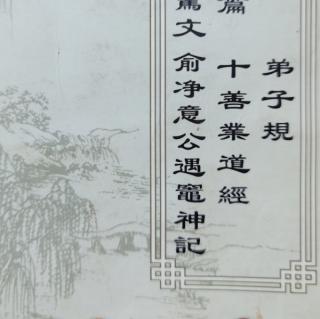 弟子規
篇 十善業道經
文 俞净意公遇竈神記